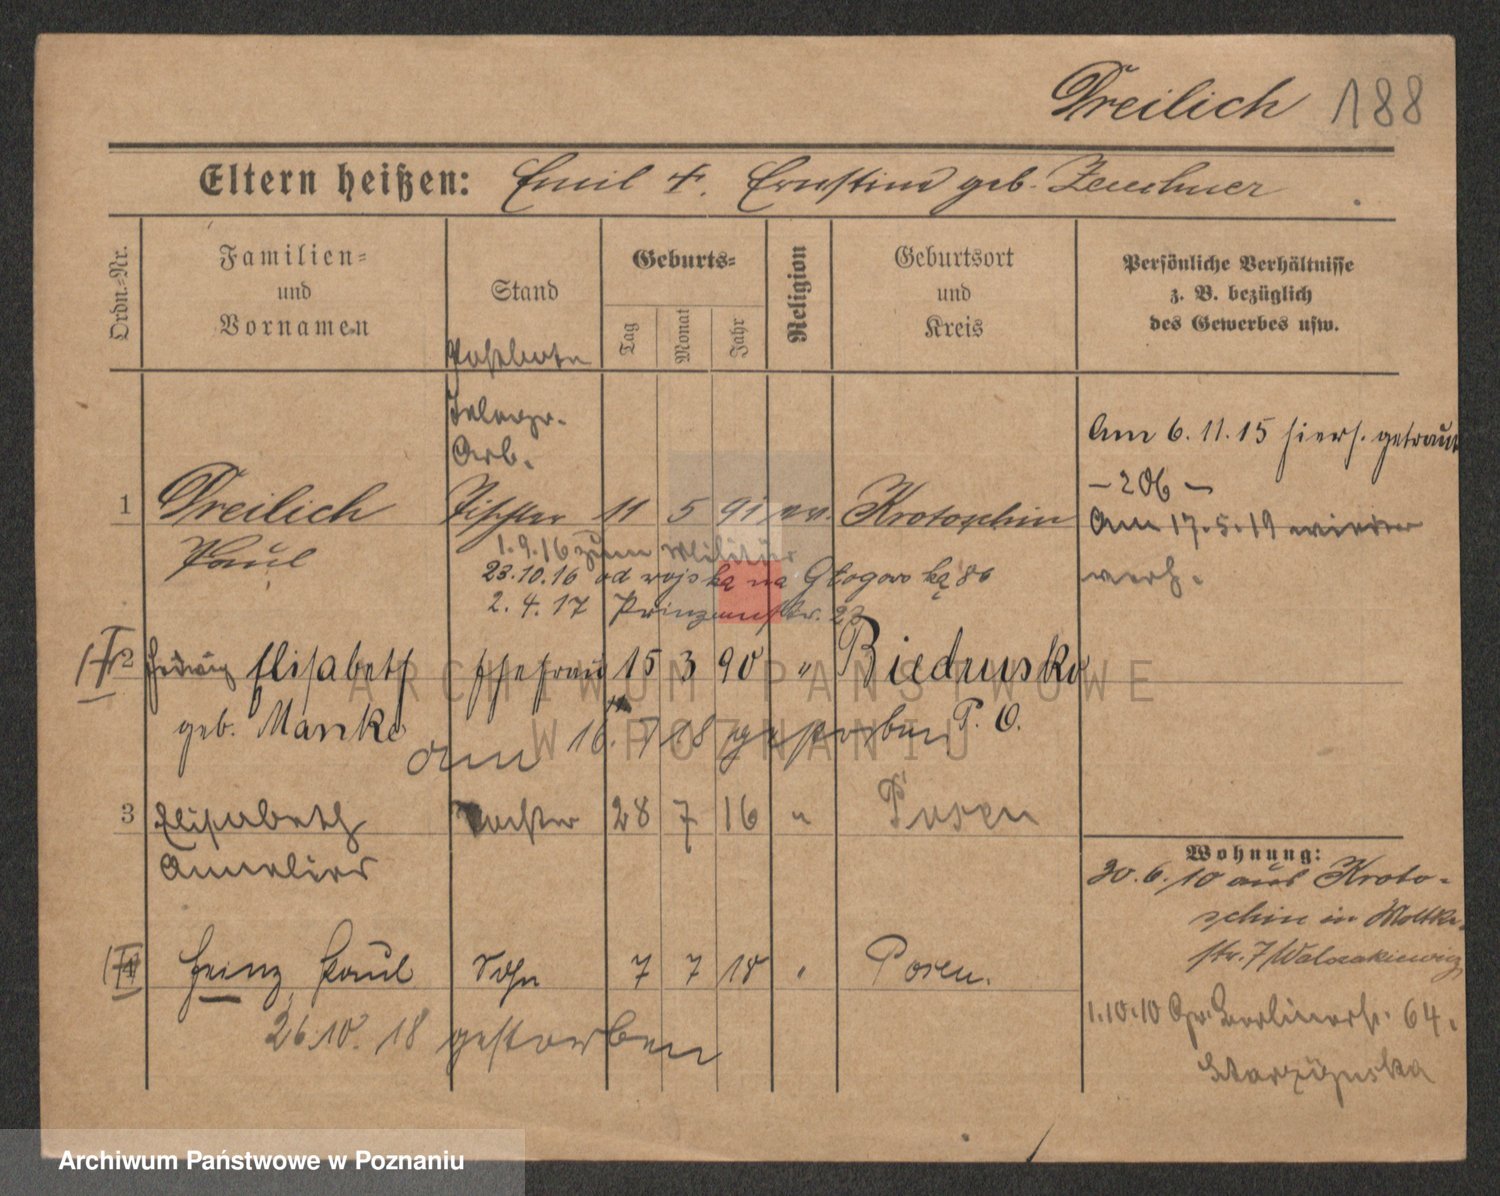 Dreilich 188
Eltern heißen: Emil †. Ernstine geb. Zeuchner
Ordn.-Nr.
Familien-
und
Vornamen
Stand
Geburts-
Tag
Monat
Jahr
Religion
Geburtsort
und
Kreis
Persönliche Verhältnisse
z. B. bezüglich
des Gewerbes usw.
Postbote
Telegr.
Arb.
1 Dreilich Tischler 11 5 91 ev. Krotoschin
Paul
1.9.16 zum Militär
23.10.16 od wojska na 
2.4.17 Prinzenstr. 23
Am 6.11.15 hiers. getraut
- 206 -
Am 17.5.19 wieder
verh.
2 Hedwig Elisabeth Ehefrau 15 3 90 " Biedrusko
geb. Manke P. O.
am 16.7.18 gestorben
3 Elisabeth Tochter 28 7 16 " Posen
Annelies
4 Heinz Paul Sohn 7 7 18 " Posen.
26.10.18 gestorben
Wohnung:
30.6.10 aus Kroto-
schin in Moltke-
str. 7 Walczakiewicz
1.10.10 Gr. Berlinerst. 64.
ARCHIWUM PAŃSTWOWE
W POZNANIU
Archiwum Państwowe w Poznaniu